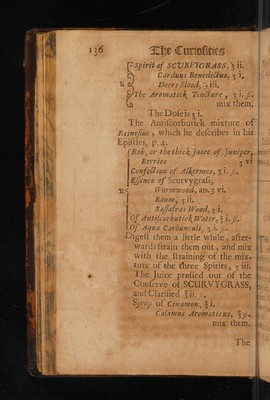 136 The Curiosities
Spirit of SCURVYGRASS, ʒ ii.
Carduus Benedictus, ʒ i.
℞ Deers Blood, ʒ iii.
The Aromatick Tincture, ʒ i. ß.
mix them.
The Dose is ʒ i.
The Antiscorbutick mixture of
Reinesius, which he describes in his
Epistles, p. 4.
Rob, or the thick Juice of Juniper,
Berries ʒ vi
Confection of Alkermes, ʒ i. ß.
Essence of Scurvygrass,
℞ Wormwood, an. ʒ vi.
Baum, ʒ ii.
Sassafras Wood, ʒ i.
Of Antiscorbutick Water, ℥ i. ß.
Of Aqua Carbunculi, ʒ i. ß.
Digest them a little while, after-
wards strain them out, and mix
with the straining of the mix-
ture of the three Spirits, ʒ iii.
The Juice pressed out of the
Conserve of SCURVYGRASS,
and Clarified ℥ ii. ß.
Syrup of Cinamon, ℥ i.
Calamus Aromaticus, ℥ ß.
mix them.
The